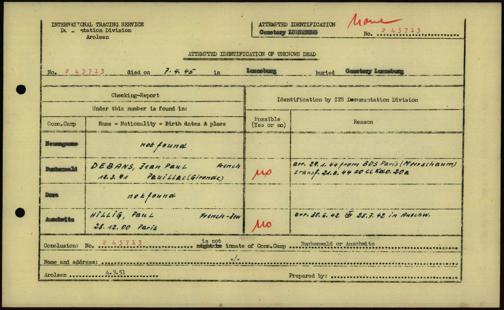 INTERNATIONAL TRACING SERVICE
Documentation Division
Arolsen
ATTEMPTED IDENTIFICATION
Cemetery LUNEBURG
None
No. F 43713
ATTEMPTED IDENTIFICATION OF UNKNOWN DEAD
No. F 43713 died on 7.4.45 in Luneburg buried Cemetery Luneburg
Checking-Report
Under this number is found in:
Identification by ITS Documentation Division
Conc.Camp
Name - Nationality - Birth dates & place
Possible (Yes or no)
Reason
Neuengamme
not found
Buchenwald
DEBANS, Jean Paul French
12.3.90 Pauillac (Gironde)
no
arr. 29.1.44 from BDS Paris (Meerschaum)
transf. 21.2.44
Dora
not found
Auschwitz
HILLIG, Paul French-Jew
28.12.00 Paris
no
25.7.42 in Auschw.
Conclusion: No. F 43713 is not inmate of Conc.Camp Buchenwald or Auschwitz
Name and address: ./.
Arolsen 4.9.51 Prepared by: